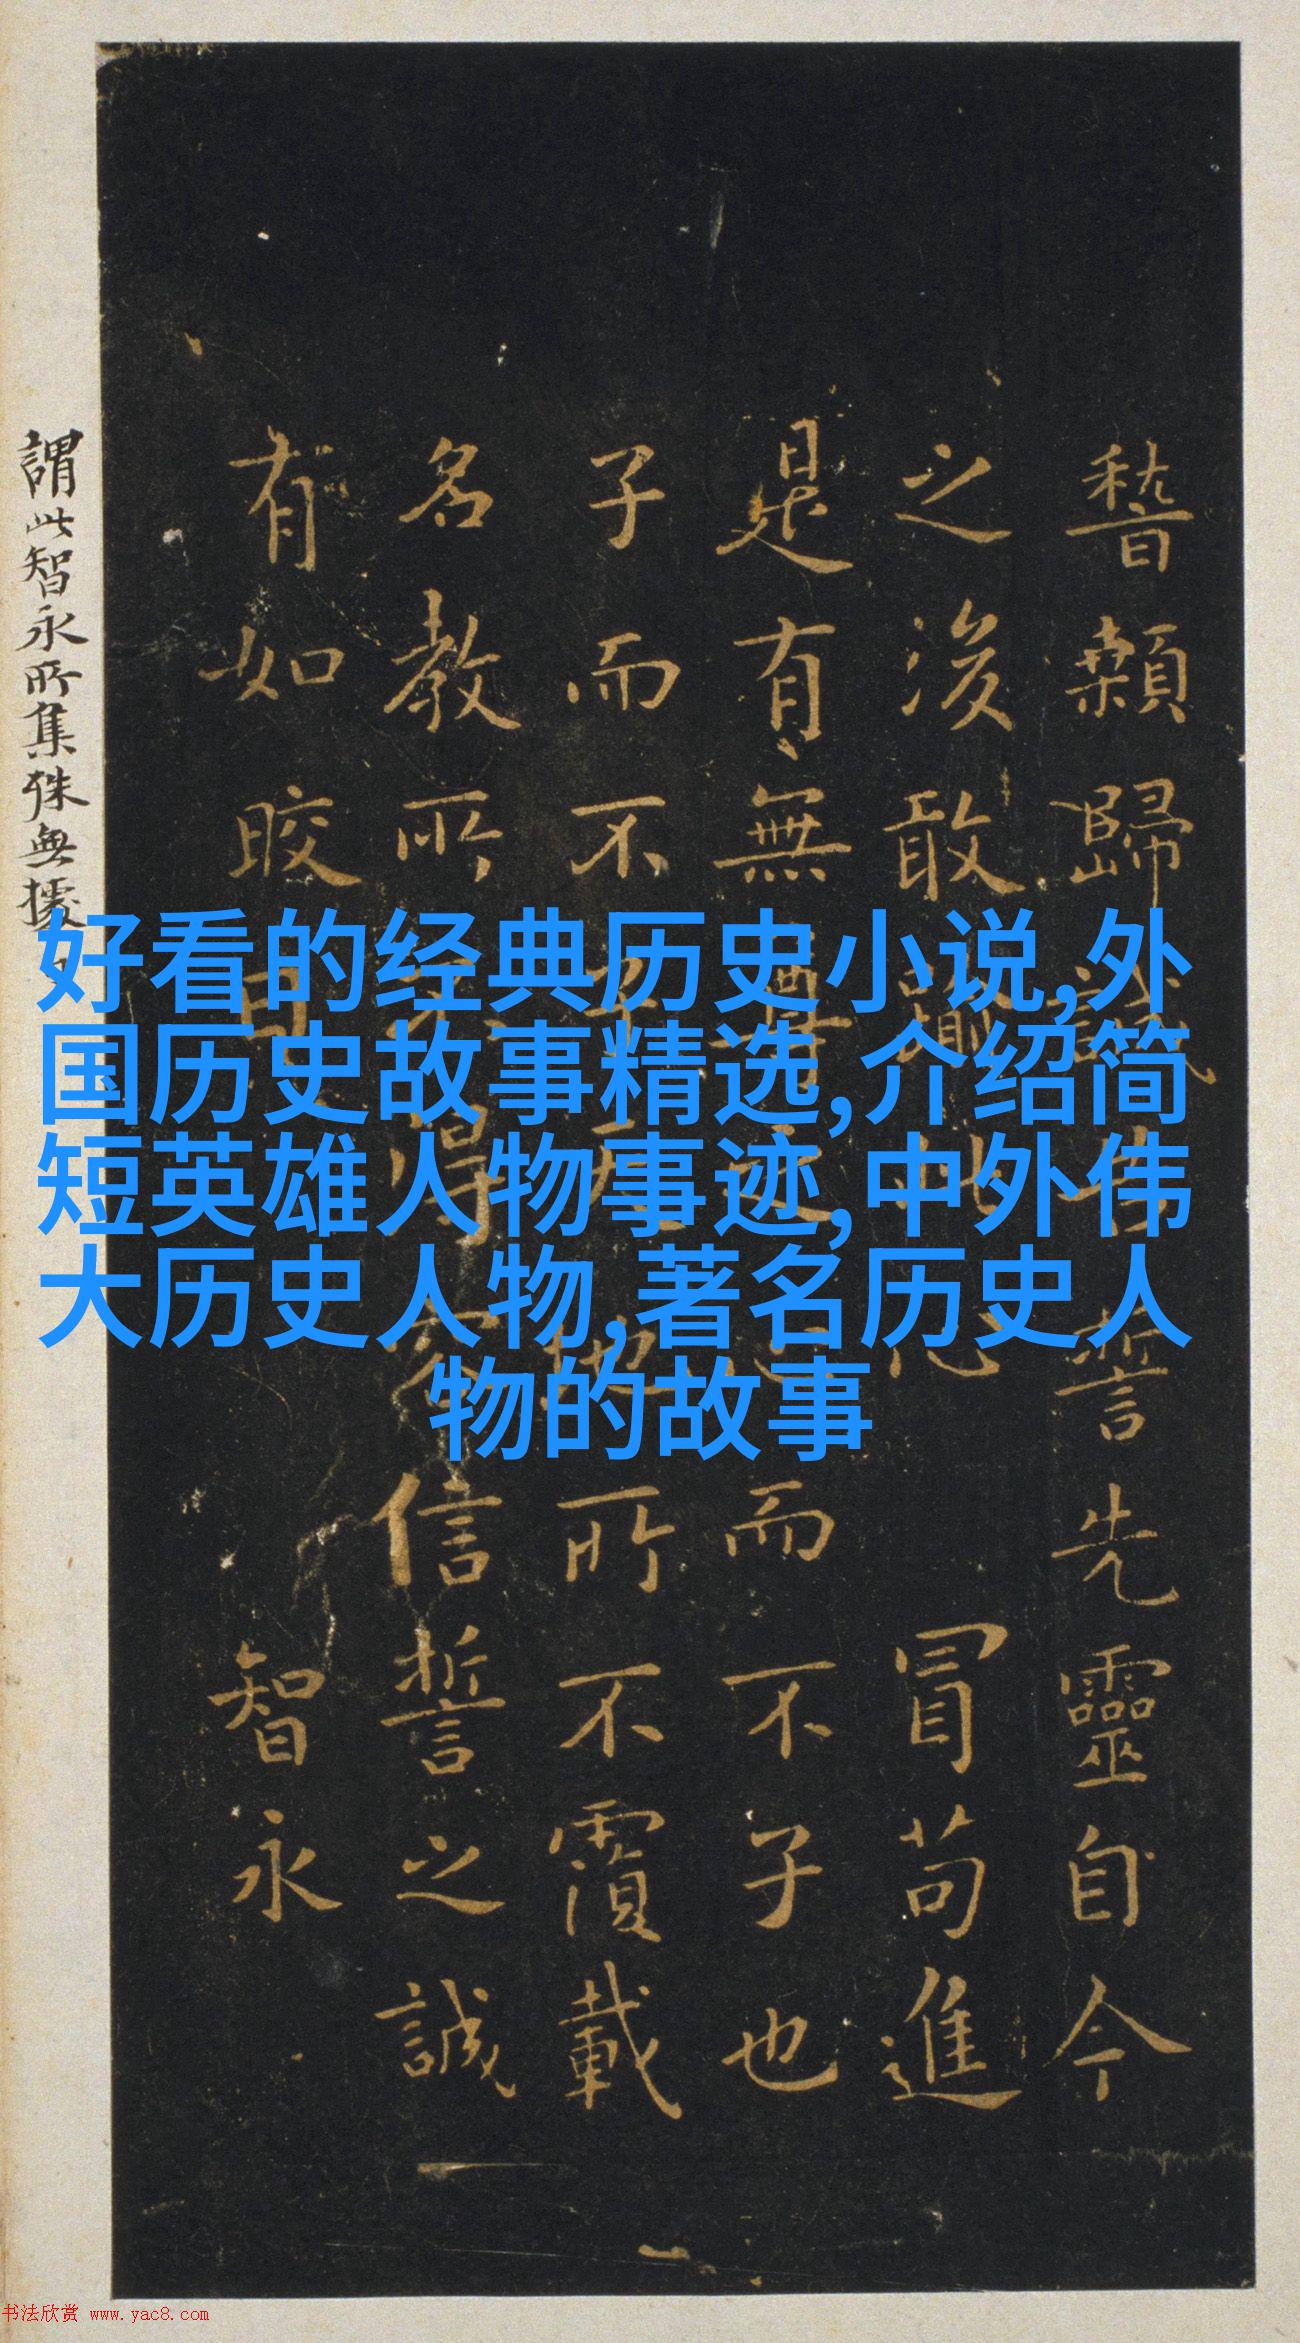 稽顙歸誠告誓先靈自今
之後敢渝此心 冒苟進
是有無尊之心而不子也
子而不子天地所不覆載
名教所不得容信誓之誠
有如皎日 智永
謂此智永所集殊無據
好看的经典历史小说,外
国历史故事精选,介绍简
短英雄人物事迹,中外伟
大历史人物,著名历史人
物的故事
书法欣赏 www.yac8.com